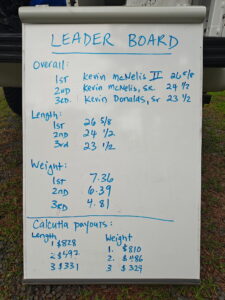 LEADER BOARD
Overall:
1ST Kevin McNelis III 26 5/8
2ND Kevin McNelis, SR. 24 1/2
3RD. Kevin Donalds, Sr 23 1/2
Length:
1ST 26 5/8
2ND 24 1/2
3RD 23 1/2
Weight:
1ST 7.36
2ND 6.39
3RD 4.81
Calcutta payouts:
Length Weight
1 $828 1. $810
2 $492 2. $486
3 $331 3 $329